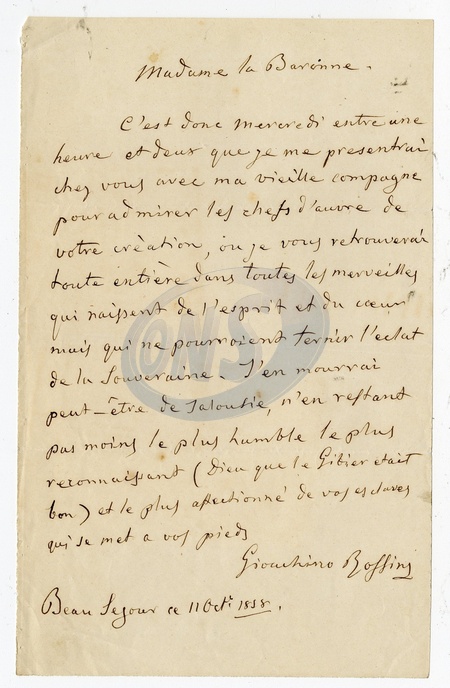 Madame la Baronne.
C'est donc Mercredi entre une
heure et deux que je me presentrai
chez vous avec ma vieille compagne
pour admirer les chefs d'œuvre de
votre création, ou je vous retrouverai
toute entière dans toutes les merveilles
qui naissent de l'esprit et du cœur
mais qui ne pourroient ternir l'eclat
de la Souveraine. J'en mourrai
peut-être de Jalousie, n'en restant
pas moins le plus humble le plus
reconnaissant (Dieu que le Gibier etait
bon) et le plus affectionné de vos esclaves
qui se met a vos pieds
Gioachino Rossini
Beau Sejour ce 11 Oct. 1858.
ONS